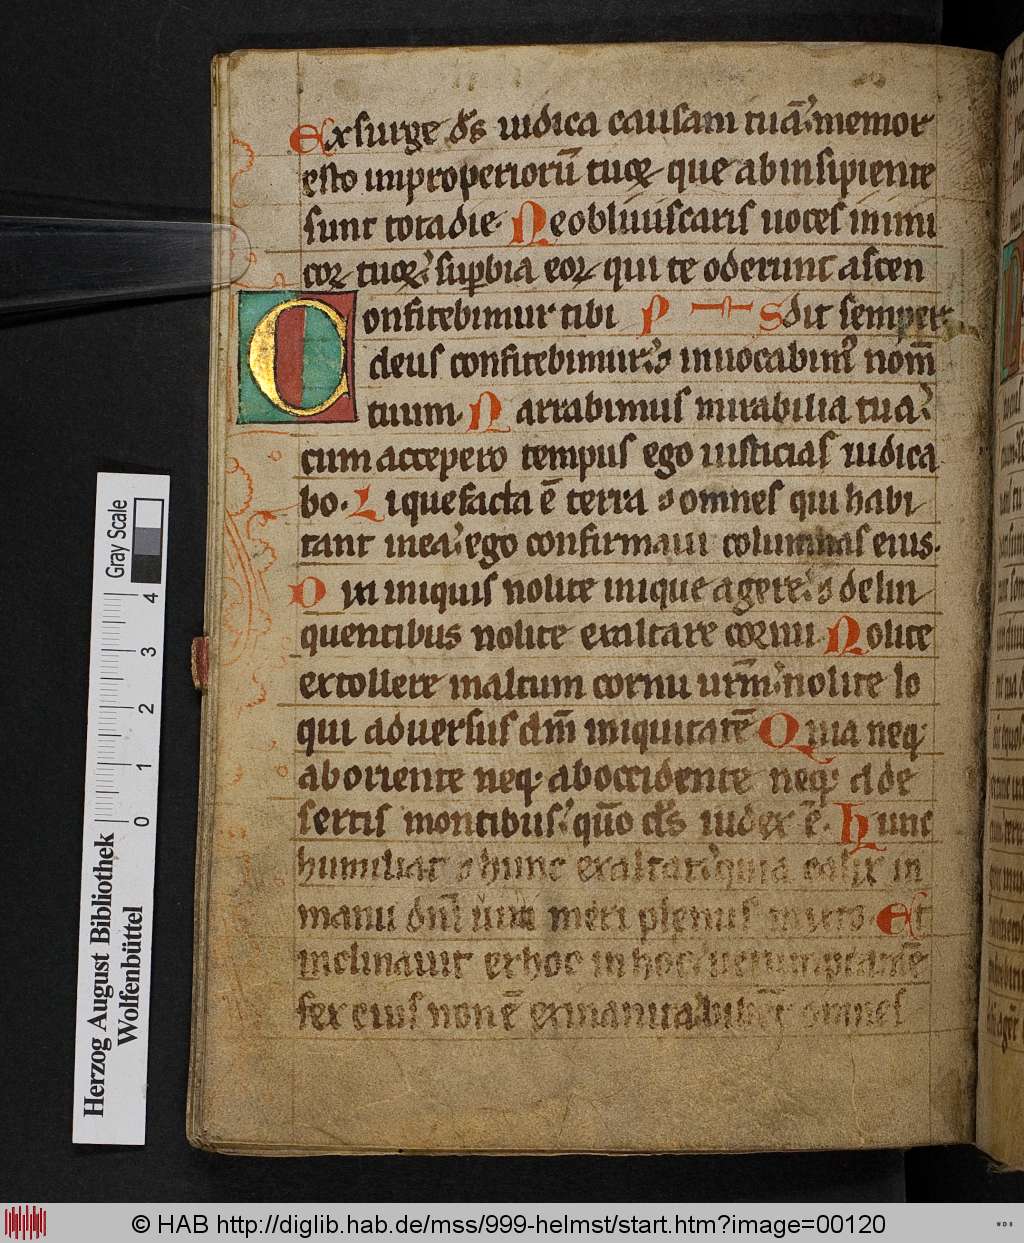 Exsurge ds̄ iudica causam tuā. memor
esto improperiorū tuoꝝ que ab insipiente
sunt tota die. Ne obliuiscaris uoces inimi
coꝝ tuoꝝ. suꝑbia eoꝝ qui te oderunt ascen
Confitebimur tibi P Sdit semper.
deus confitebimur. ⁊ inuocabimꝰ nom̄
tuum. Narrabimus mirabilia tua.
cum accepero tempus ego iusticias iudica
bo. Liquefacta ē terra ⁊ omnes qui habi
tant in ea. ego confirmaui columnas eius.
Dixi iniquis nolite inique agere. ⁊ delin
quentibus nolite exaltare cornu. Nolite
extollere in altum cornu urm̄. nolite lo
qui aduersus dm̄ iniquitatē Quia neqꝫ
ab oriente neqꝫ ab occidente neqꝫ a de
sertis montibus. qūo ds̄ iudex ē. Hunc
humiliat ⁊ hunc exaltat. quia calix in
manu dn̄i uini meri plenus mixto. Et
inclinauit ex hoc in hoc uerumptamē
fex eius non ē exinanita bibēt omnes
Gray Scale
0 1 2 3 4
Herzog August Bibliothek
Wolfenbüttel
© HAB http://diglib.hab.de/mss/999-helmst/start.htm?image=00120